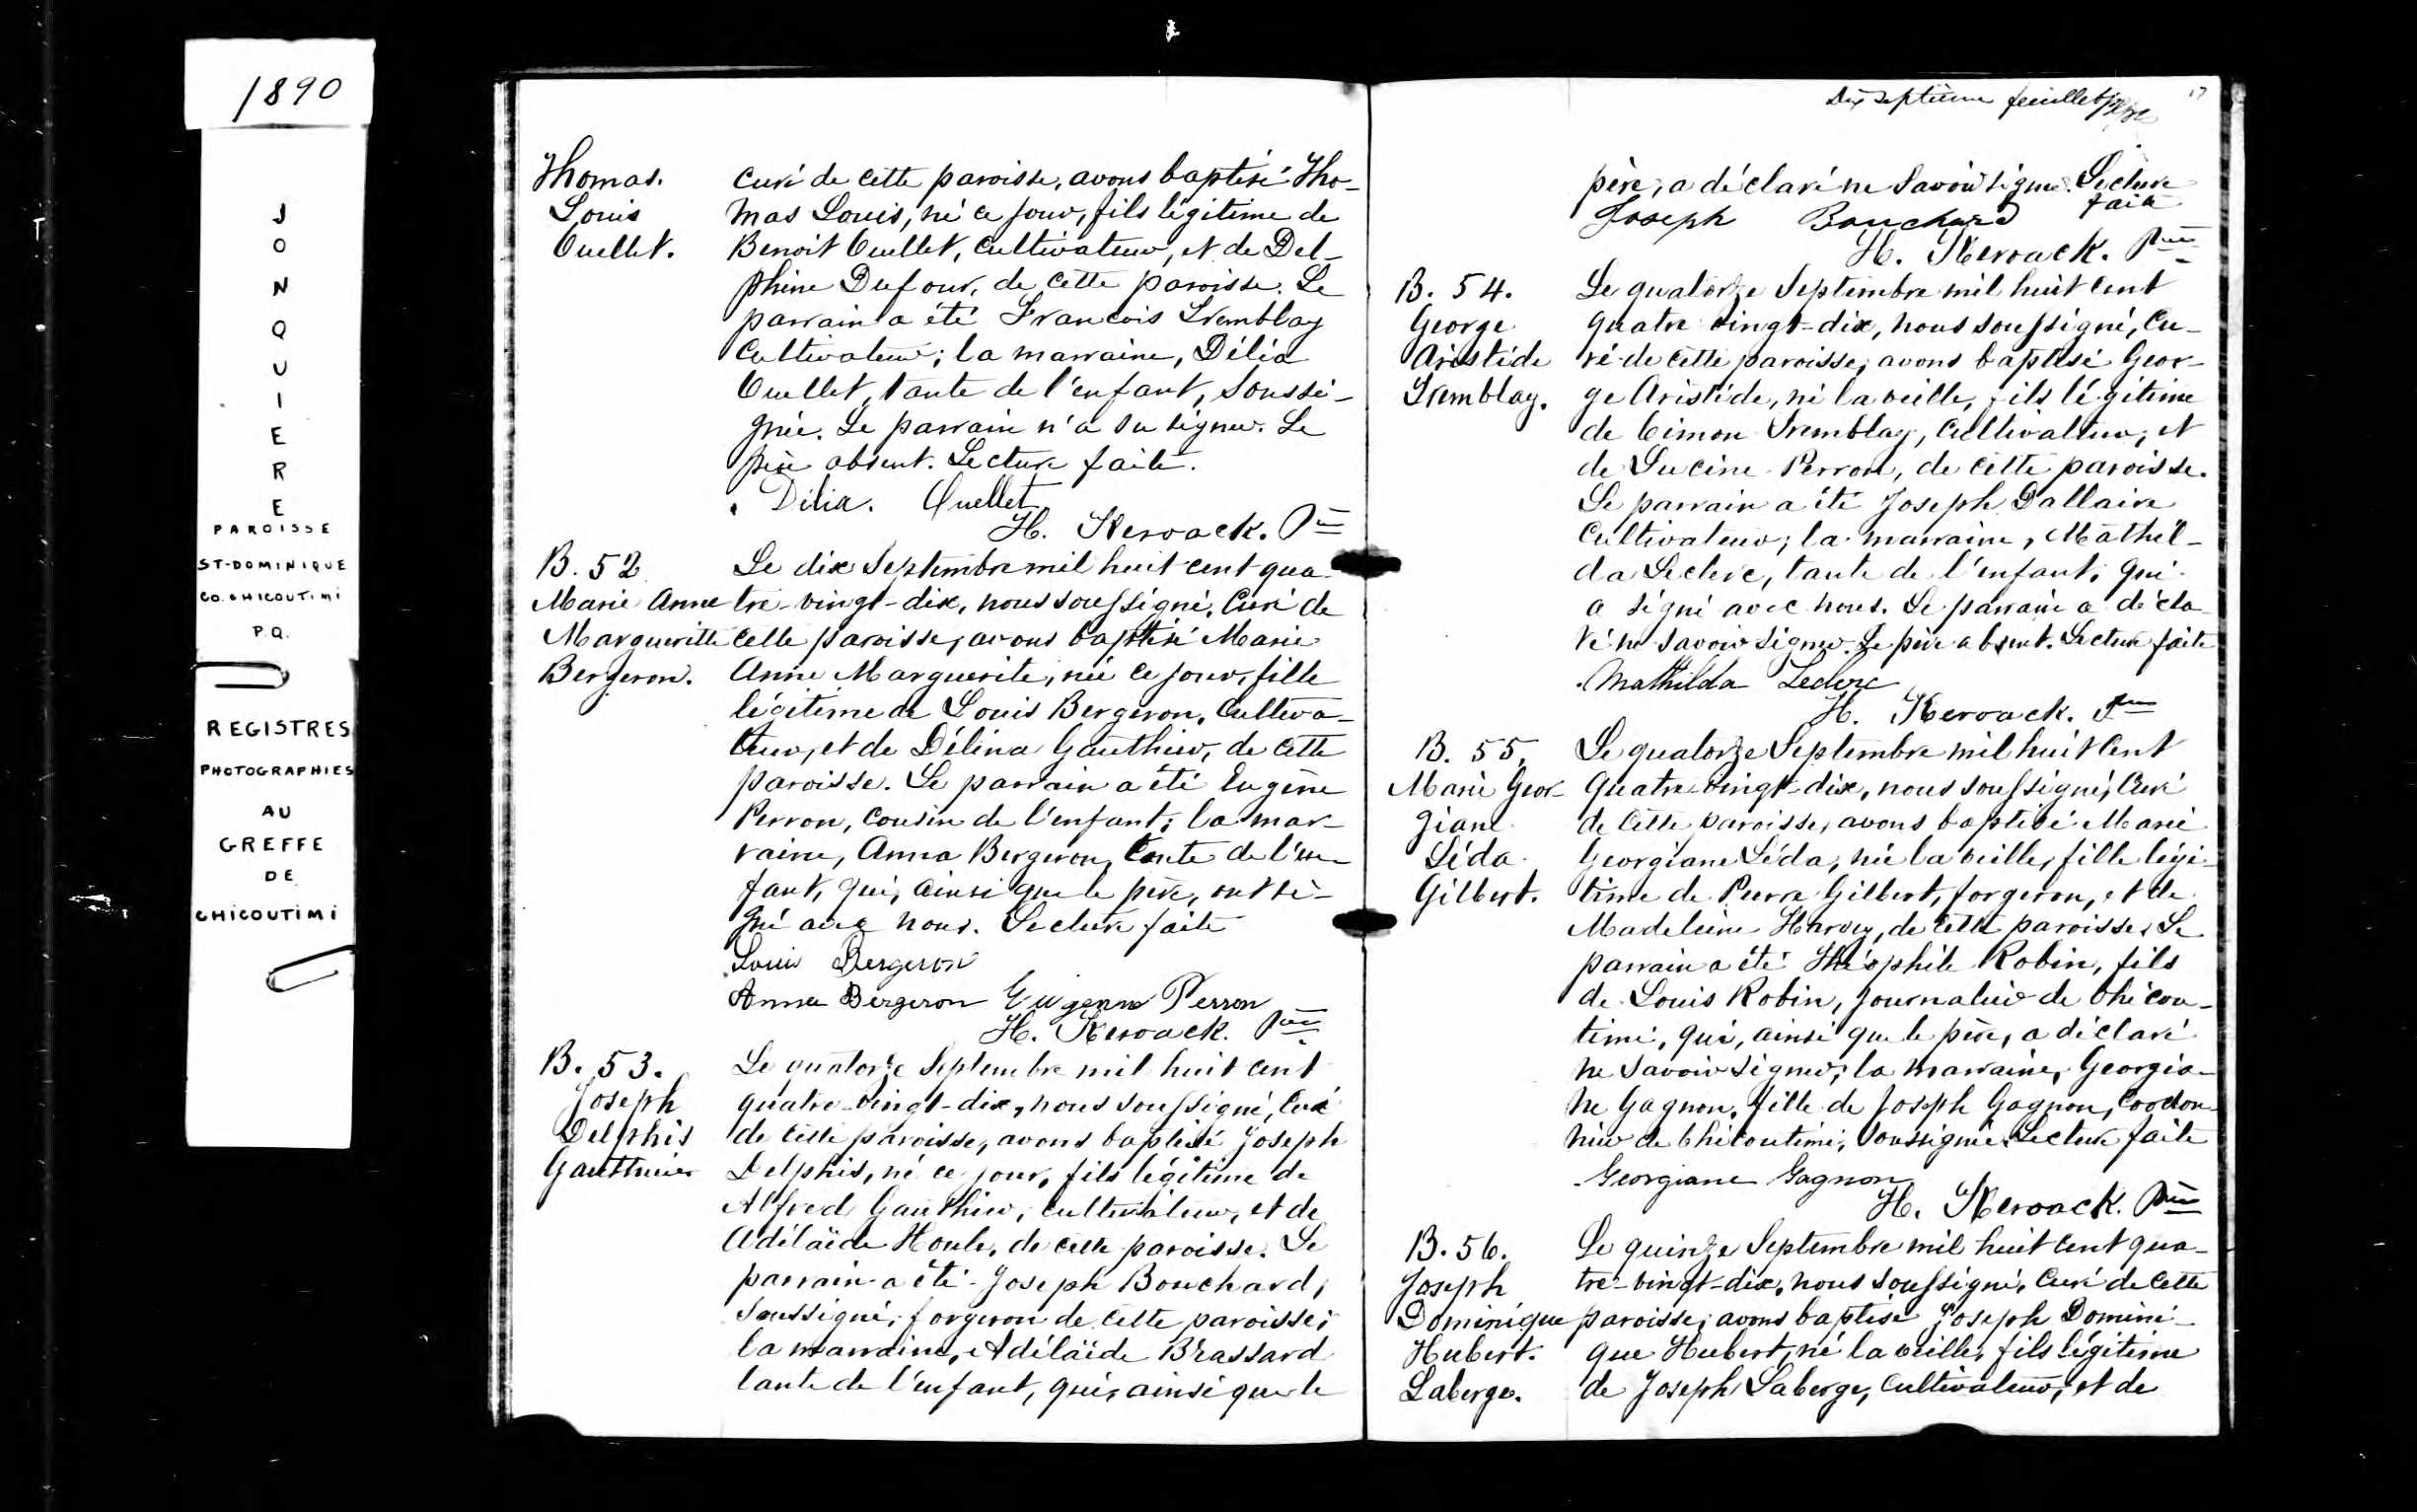 1890
JONQUIERE
PAROISSE
ST-DOMINIQUE
CO. CHICOUTIMI
P.Q.
REGISTRES
PHOTOGRAPHIES
AU
GREFFE
DE
CHICOUTIMI
Thomas.
Louis
Ouellet.
Curé de cette paroisse, avons baptisé Tho-
mas Louis, né ce jour, fils légitime de
Benoit Ouellet, cultivateur, et de Del-
phine Dufour, de cette paroisse. Le
parrain a été François Tremblay
Cultivateur; la marraine, Délia
Ouellet, tante de l'enfant, soussi-
gnée. Le parrain n'a su signer. Le
père absent. Lecture faite.
Délia. Ouellet
H. Kerouack. Ptre
B. 52
Marie Anne
Margueritte
Bergeron.
Le dix Septembre mil huit cent qua-
tre-vingt-dix, nous soussigné, Curé de
cette paroisse, avons baptisé Marie
Anne Marguerite, née ce jour, fille
légitime de Louis Bergeron, Cultiva-
teur, et de Délina Gauthier, de cette
paroisse. Le parrain a été Eugène
Perron, cousin de l'enfant; la mar-
raine, Anna Bergeron, tante de l'en-
fant, qui, ainsi que le père, ont si-
gné avec nous. Lecture faite
Louis Bergeron
Anna Bergeron Eugene Perron
H. Kerouack. Ptre
B. 53.
Joseph
Delphis
Gauthier
Le quatorze Septembre mil huit cent
quatre-vingt-dix, nous soussigné, Curé
de cette paroisse, avons baptisé Joseph
Delphis, né ce jour, fils légitime de
Alfred Gauthier, cultivateur, et de
Adélaïde Houle, de cette paroisse. Le
parrain a été Joseph Bouchard,
soussigné, forgeron de cette paroisse;
la marraine, Adélaïde Brassard
tante de l'enfant, qui, ainsi que le
Dix septième feuillet
17
père, a déclaré ne savoir signer. Lecture
faite
Joseph Bouchard
H. Kerouack. Ptre
B. 54.
George
Aristide
Tremblay.
Le quatorze Septembre mil huit cent
quatre vingt-dix, nous soussigné, Cu-
ré de cette paroisse, avons baptisé Geor-
ge Aristide, né la veille, fils légitime
de Cimon Tremblay, Cultivateur, et
de Lucine Perron, de cette paroisse.
Le parrain a été Joseph Dallaire
Cultivateur; la marraine, Mathil-
da Leclerc, tante de l'enfant, qui
a signé avec nous. Le parrain a décla-
ré ne savoir signer. Le père absent. Lecture faite
Mathilda Leclerc
H. Kerouack. Ptre
B. 55.
Marie Geor-
giane
Léda
Gilbert.
Le quatorze Septembre mil huit cent
quatre-vingt-dix, nous soussigné, Curé
de cette paroisse, avons baptisé Marie
Georgiane Léda, née la veille, fille légi-
time de Pierre Gilbert, forgeron, et de
Madeleine Harvey, de cette paroisse. Le
parrain a été Théophile Robin, fils
de Louis Robin, journalier de Chicou-
timi, qui, ainsi que le père, a déclaré
ne savoir signer; la marraine, Georgia-
ne Gagnon, fille de Joseph Gagnon, Cordon-
nier de Chicoutimi, soussignée. Lecture faite
Georgiane Gagnon
H. Kerouack. Ptre
B. 56.
Joseph
Dominique
Hubert.
Laberge.
Le quinze Septembre mil huit cent qua-
tre-vingt-dix, nous soussigné, Curé de cette
paroisse, avons baptisé Joseph Domini-
que Hubert, né la veille, fils légitime
de Joseph Laberge, Cultivateur, et de